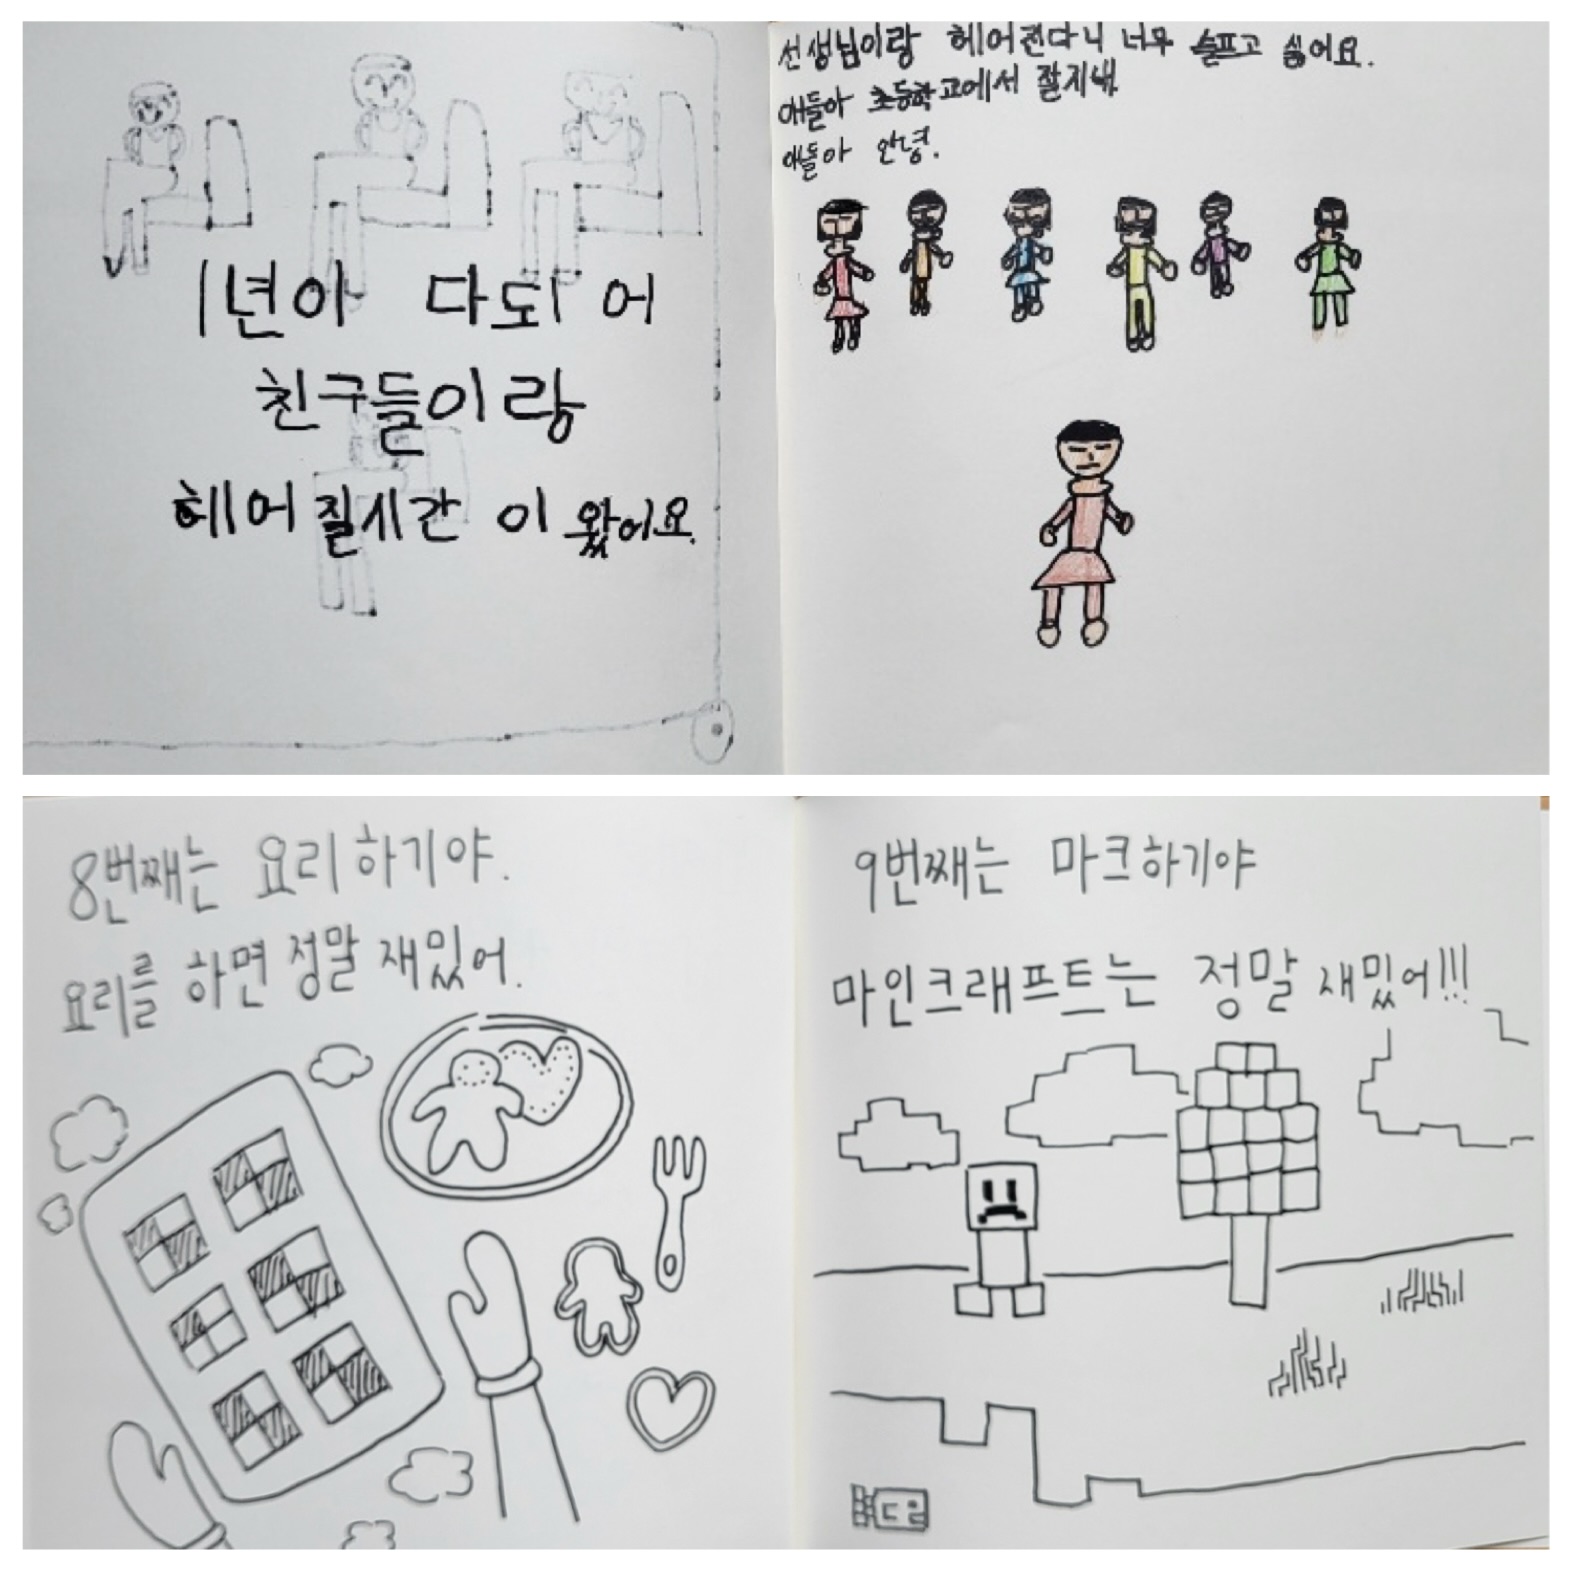 1년이 다되어
친구들이랑
헤어질시간이 왔어요.
선생님이랑 헤어진다니 너무 슬프고 싫어요.
애들아 초등학교에서 잘지내
애들아 안녕.
8번째는 요리하기야.
요리를 하면 정말 재밌어.
9번째는 마크하기야
마인크래프트는 정말 재밌어!!!